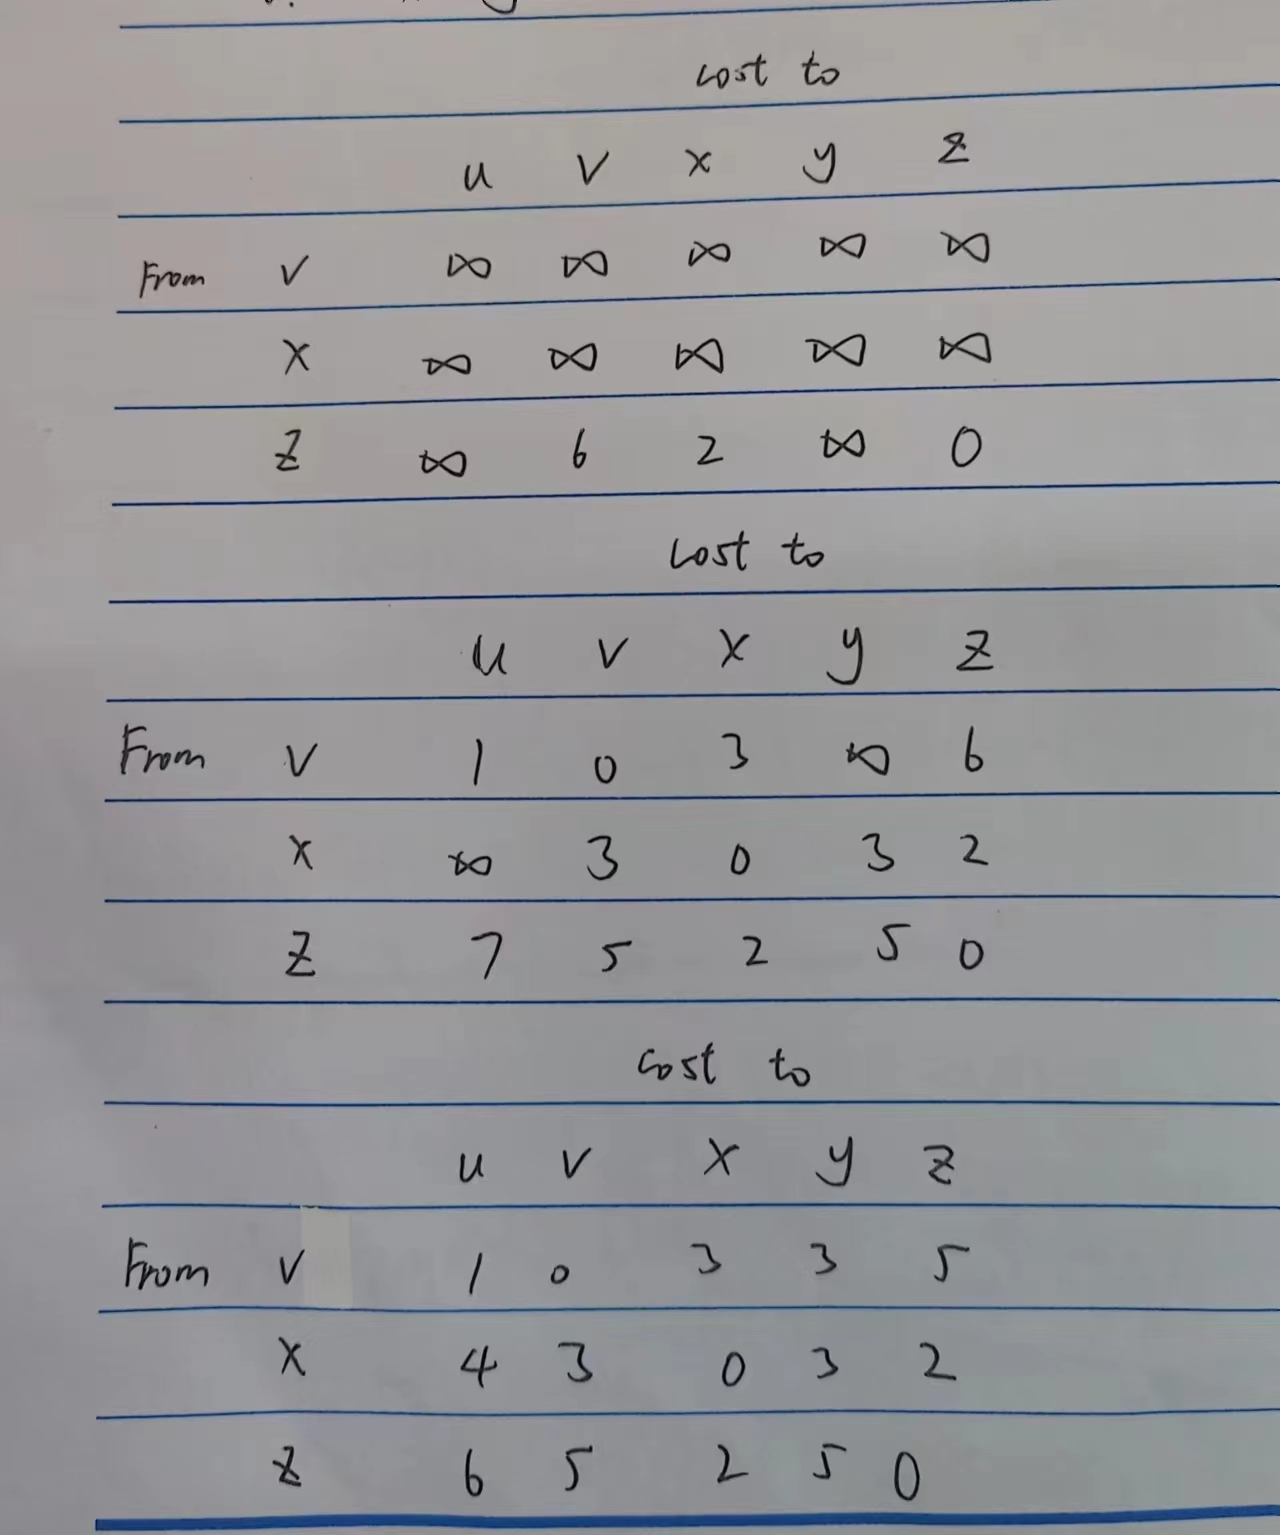 cost to
u v x y z
From v ∞ ∞ ∞ ∞ ∞
x ∞ ∞ ∞ ∞ ∞
z ∞ 6 2 ∞ 0
cost to
u v x y z
From v 1 0 3 ∞ 6
x ∞ 3 0 3 2
z 7 5 2 5 0
cost to
u v x y z
From v 1 0 3 3 5
x 4 3 0 3 2
z 6 5 2 5 0